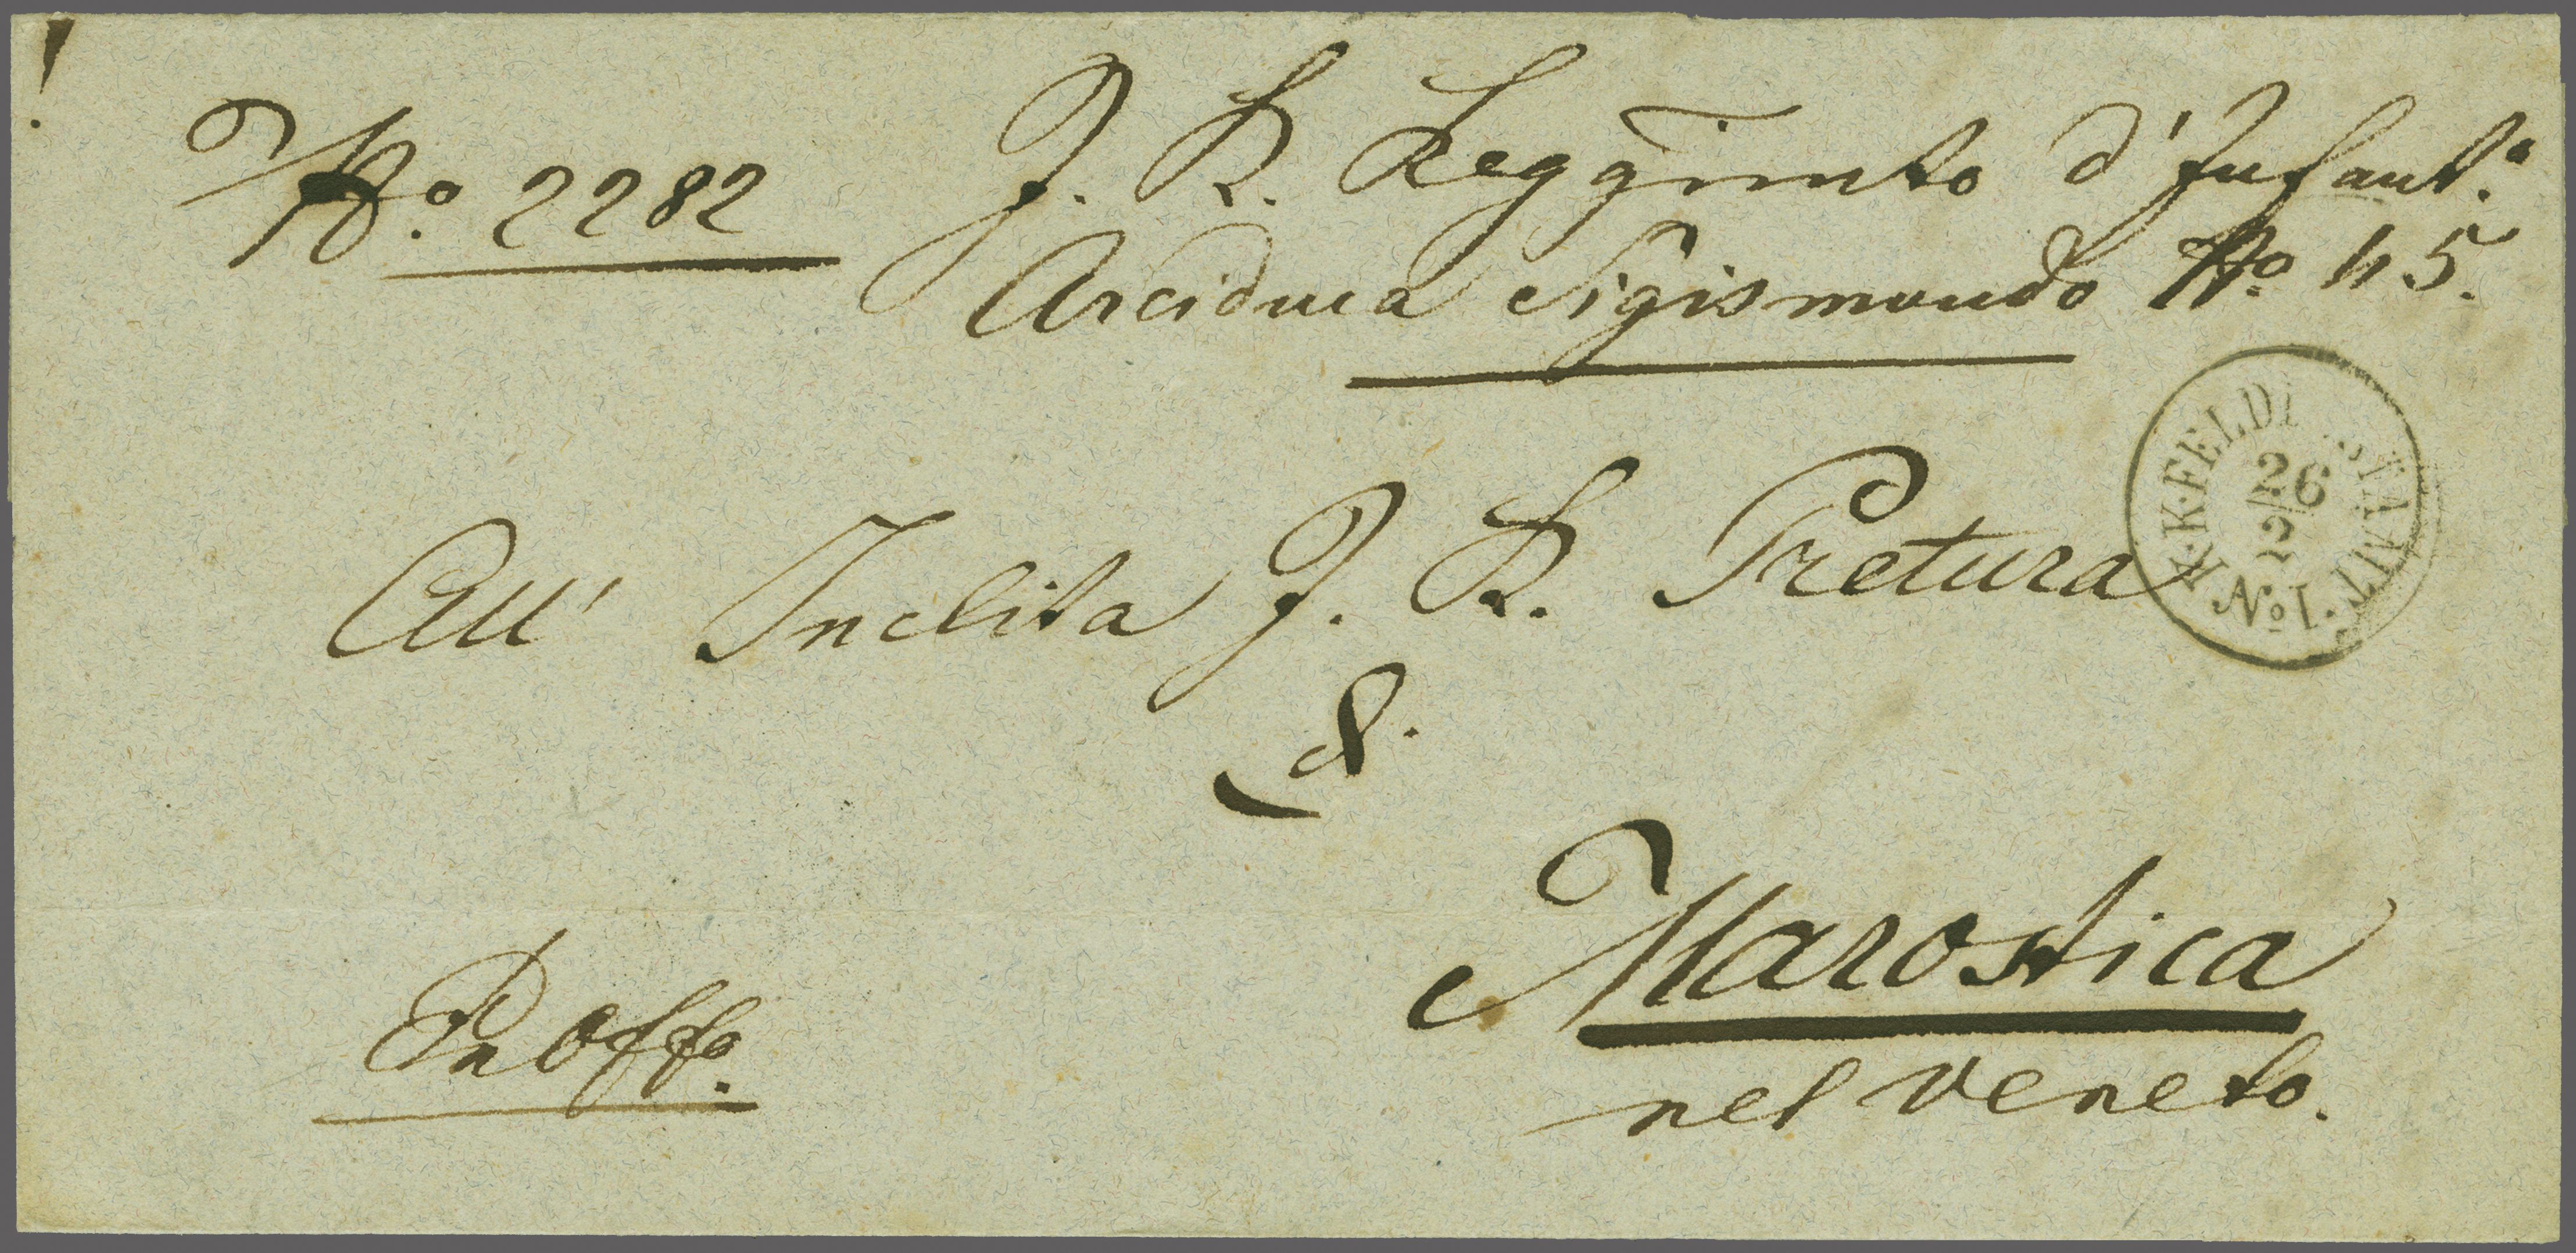 No. 2282
J. R. Reggimto d'Infant.a
Arciduca Sigismondo No. 45.
K.K.FELDPOSTAMT.
26
2
No I.
All' Inclita J. R. Pretura
Marostica
nel Veneto.